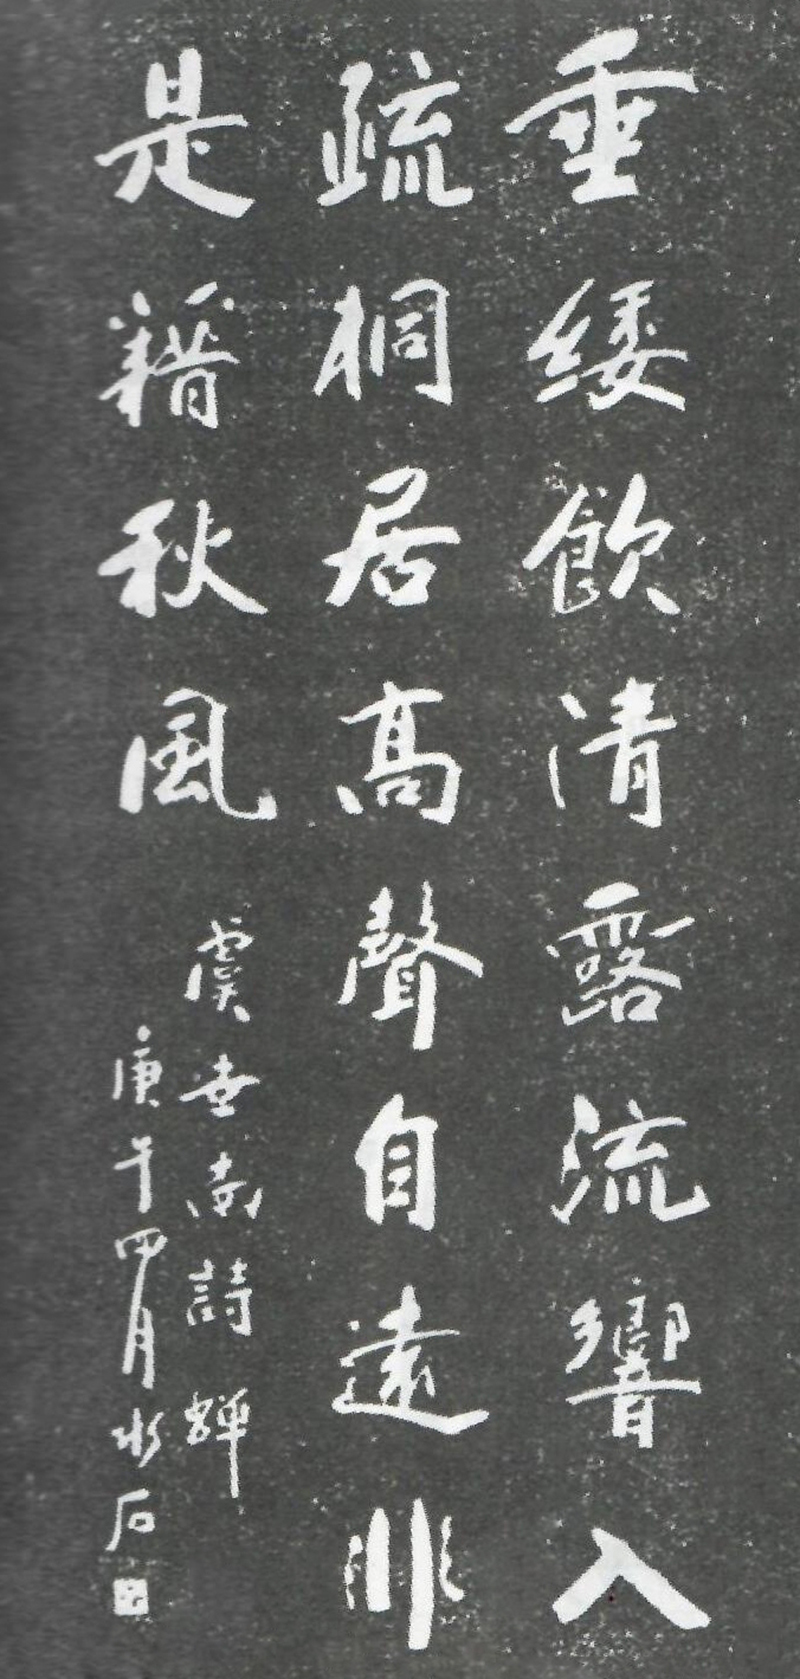 垂緌飲清露流響入
疏桐居高聲自遠非
是藉秋風
虞世南詩蟬
庚午四月水石